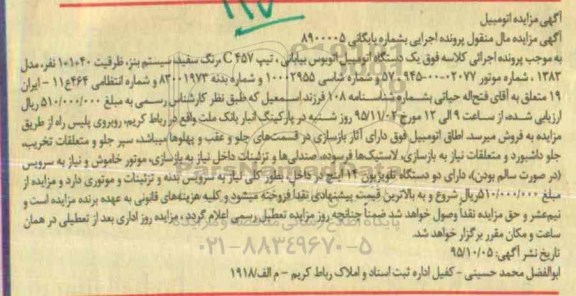 آگهی مزایده اتومبیل
آگهی مزایده مال منقول پرونده اجرایی بشماره بایگانی ۸۹۰۰۰۰۵
به موجب پرونده اجرائی کلاسه فوق یک دستگاه اتومبیل اتوبوس بیابانی، تیپ C ۴۵۷، رنگ سفید، سیستم بنز، ظرفیت ۴۰+۱+۱ نفر، مدل
۱۳۸۳، شماره موتور ۰۲۰۷۷-۰۰-۹۴۵-۵۷ و شماره شاسی ۱۰۰۰۲۹۵۵ و شماره بدنه ۸۳۰۰۱۹۷۳ و شماره انتظامی ۴۶۴ع۱۱ – ایران
۱۹ متعلق به آقای فتح‌اله حیاتی بشماره شناسنامه ۱۰۸ فرزند اسمعیل که طبق نظر کارشناس رسمی به مبلغ ۵۱۰/۰۰۰/۰۰۰ ریال
ارزیابی شده، از ساعت ۹ الی ۱۲ مورخ ۹۵/۱۱/۰۲ روز شنبه در پارکینگ انبار بانک ملت واقع در رباط کریم، روبروی پلیس راه از طریق
مزایده به فروش میرسد. اطاق اتومبیل فوق دارای آثار بازسازی در قسمت‌های جلو و عقب و پهلوها میباشد، سپر جلو و متعلقات تخریب،
جلو داشبورد و متعلقات نیاز به بازسازی، لاستیک‌ها فرسوده، صندلی‌ها و تزئینات داخل نیاز به بازسازی، موتور خاموش و نیاز به سرویس
(در صورت سالم بودن)، دارای دو دستگاه تلویزیون ۱۴ اینچ در داخل، بطور کلی نیاز به سرویس بدنه و تزئینات و موتوری دارد و مزایده از
مبلغ ۵۱۰/۰۰۰/۰۰۰ ریال شروع و به بالاترین قیمت پیشنهادی نقداً فروخته میشود و کلیه هزینه‌های قانونی به عهده برنده مزایده است و
نیم‌عشر و حق مزایده نقداً وصول خواهد شد ضمناً چنانچه روز مزایده تعطیل رسمی اعلام گردد، مزایده روز اداری بعد از تعطیلی در همان
ساعت و مکان مقرر برگزار خواهد شد.
تاریخ نشر آگهی: ۹۵/۱۰/۰۵
ابوالفضل محمد حسینی – کفیل اداره ثبت اسناد و املاک رباط کریم – م الف/۱۹۱۸
۰۲۱-۸۸۳۴۹۶۷۰-۵